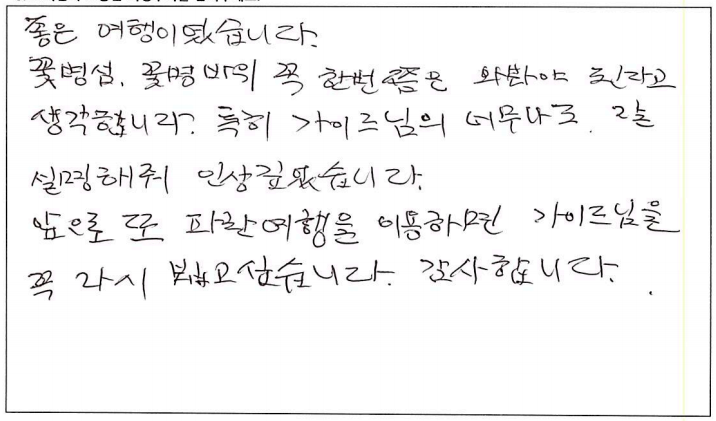 좋은 여행이였습니다.
꽃병섬, 꽃병 바위 꼭 한번 쯤은 와봐야 된다고
생각합니다. 특히 가이드님의 너무나도 잘
설명해줘 인상깊였습니다.
앞으로 또 파란여행을 이용하면 가이드님을
꼭 다시 뵙고싶습니다. 감사합니다.